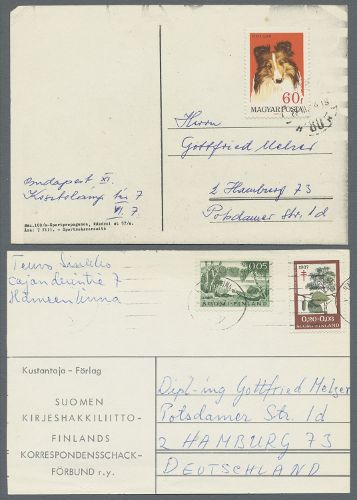 60f
MAGYAR POSTA
Herrn
Gottfried Melzer
2 Hamburg 73
Potsdamer Str. 1d
Budapest XI.
7
VI. 7
Kustantaja – Förlag
SUOMEN
KIRJESHAKKILIITTO-
FINLANDS
KORRESPONDENSSCHACK-
FÖRBUND r.y.
0,05
SUOMI-FINLAND
1967
0,20+0,03
SUOMI-FINLAND
Hämeenlinna
Dipl-ing Gottfried Melzer
Potsdamer Str. 1d
2 HAMBURG 73
DEUTSCHLAND